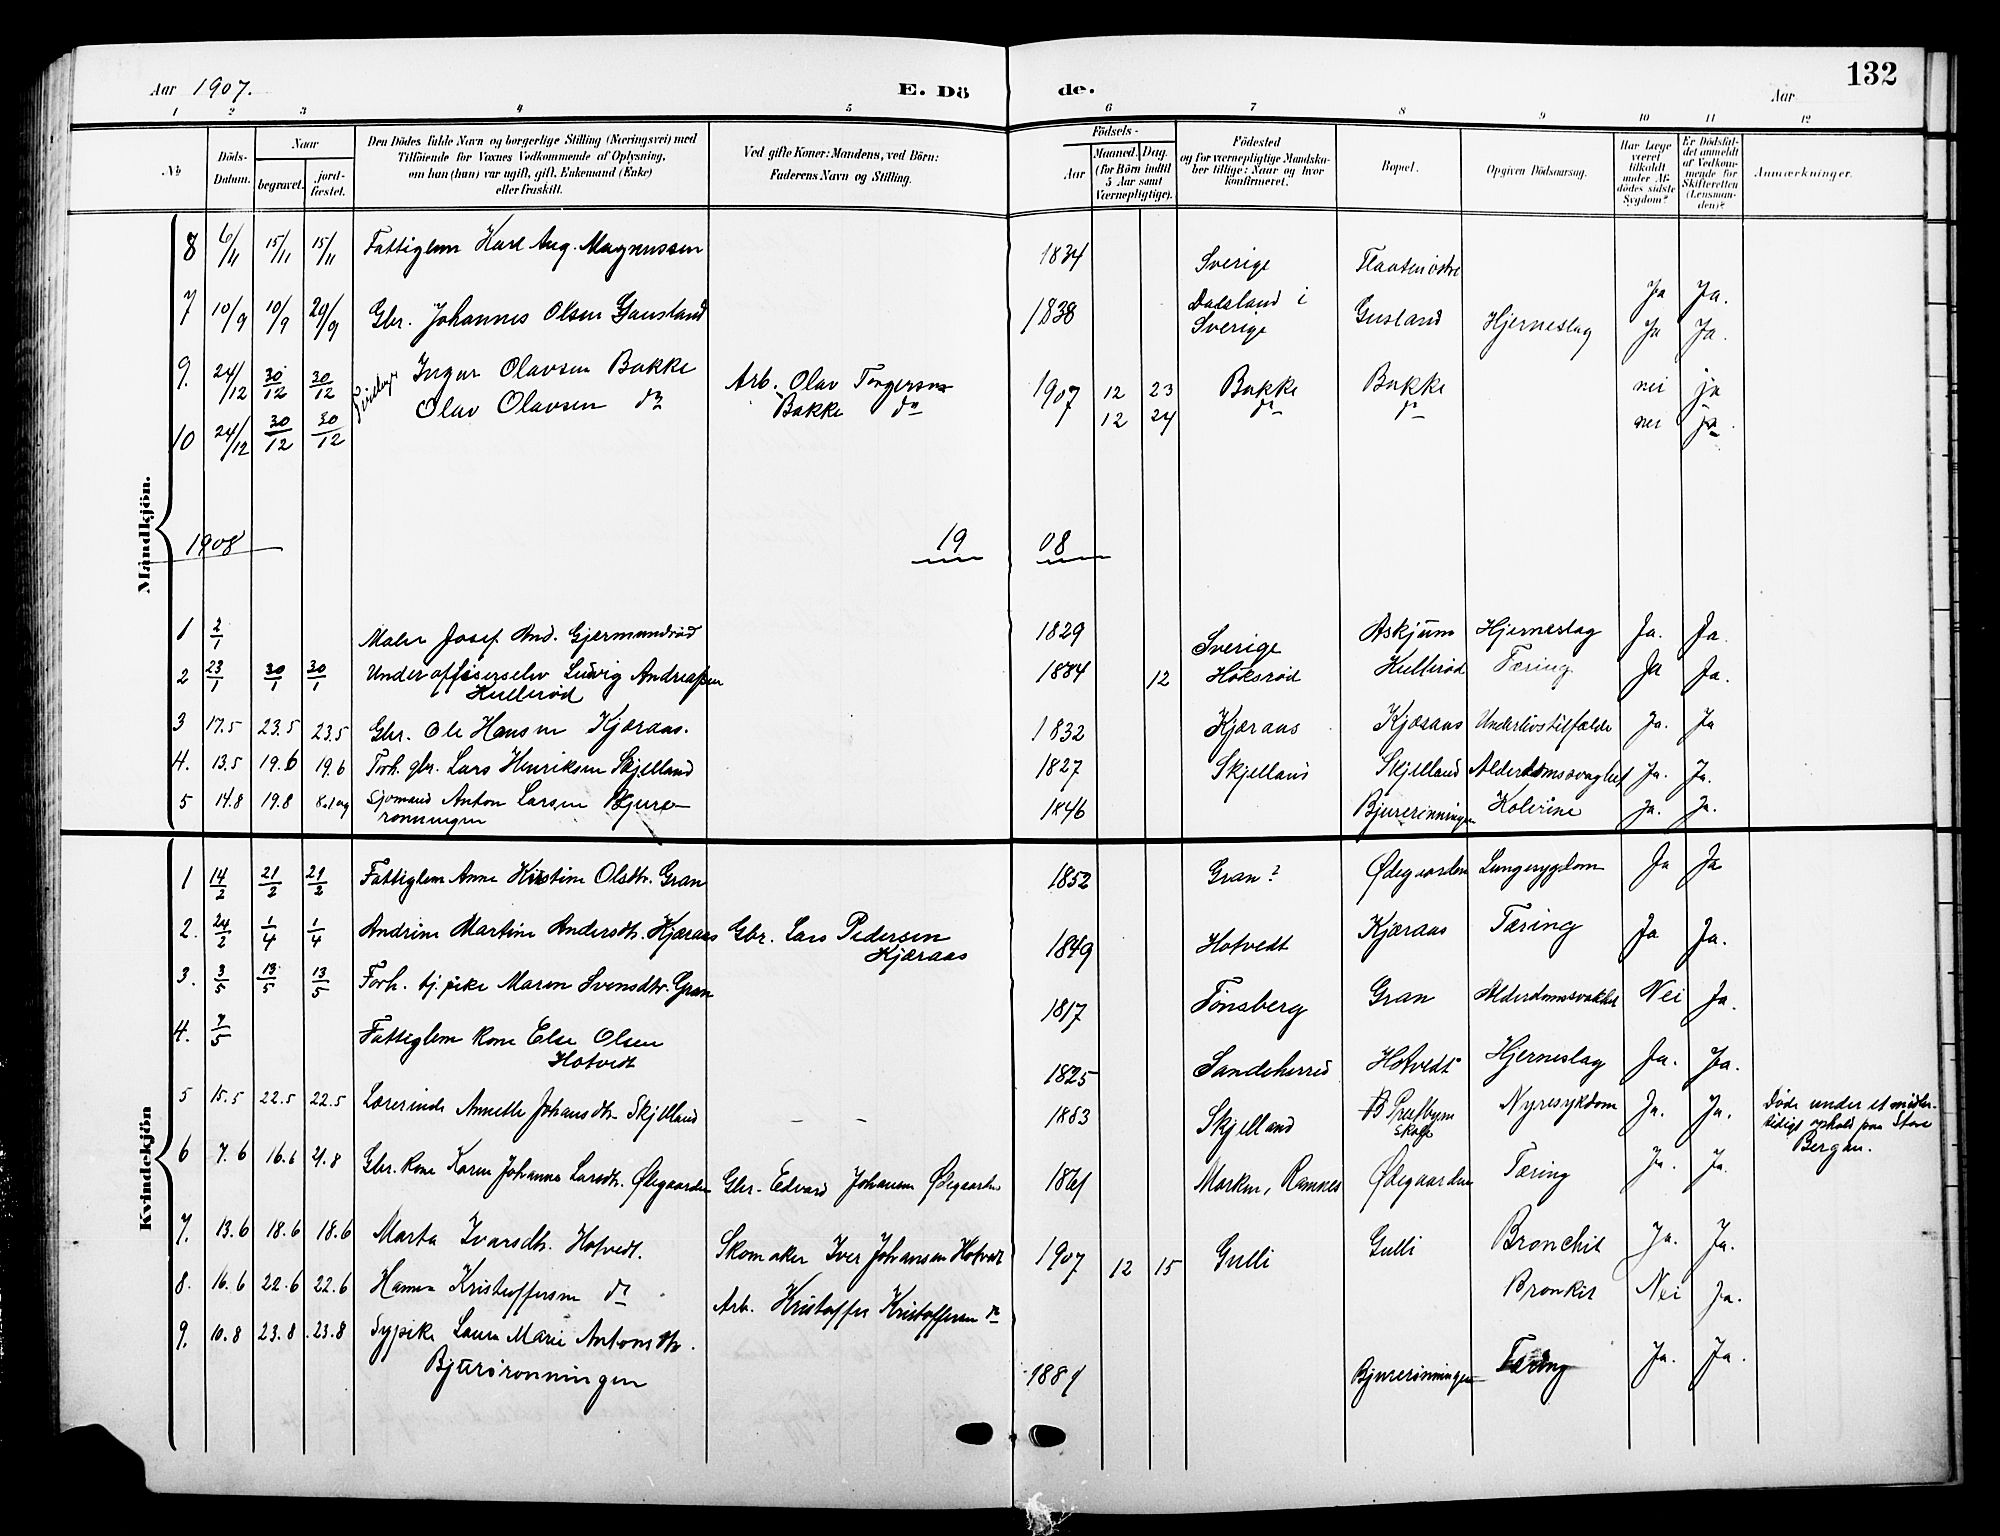 Aar 1907. E. Dö de. Aar 132
1 2 3 4 5 6 7 8 9 10 11 12
No Döds-Datum. Naar begravet. jord-fæstet. Den Dödes fulde Navn og borgerlige Stilling (Næringsvei) med Tilföiende for Voxnes Vedkommende af Oplysning, om han (hun) var ugift, gift, Enkemand (Enke) eller fraskilt. Ved gifte Koner: Mandens, ved Börn: Faderens Navn og Stilling. Födsels- Aar Maaned. Dag. (for Börn indtil 5 Aar samt Værnepligtige). Födested og for værnepligtige Mandska-ber tillige: Naar og hvor konfirmeret. Bopæl. Opgiven Dödsaarsag. Har Læge været tilkaldt under Af-dödes sidste Sygdom? Er Dödsfal-det anmeldt af Vedkom-mende for Skifteretten (Lensman-den)? Anmærkninger.
Mandkjön.
8 6/11 15/11 15/11 Fattiglem Karl Aug. Magnussen 1834 Sverige Flaatenöstre Ja Ja.
7 10/9 10/9 29/9 Gbr. Johannes Olsen Gausland 1838 Dalsland i Sverige Gusland Hjerneslag Ja Ja.
9. 24/12 30/12 30/12 Ingar Olavsen Bakke Arb. Olav Torgersen Bakke 1907 12 23 Bakke Bakke nei ja
10 24/12 30/12 30/12 Olav Olavsen do do 12 24 do do nei ja
1908 19 08
1 2/1 Maler Josef And. Gjermundröd 1829 Sverige Askjum Hjerneslag Ja. Ja.
2 23/1 30/1 30/1 Underofficerselev Ludvig Andreassen Hullerød 1884 12 Høksrød Hullerød Tæring Ja Ja.
3 17.5 23.5 23.5 Gbr. Ole Hansen Kjæraas. 1832 Kjæraas Kjæraas Underlivstilfælde Ja. Ja
4. 13.5 19.6 19.6 Forh. gbr. Lars Henriksen Skjelland 1827 Skjelland Skjelland Alderdomssvaghet Ja. Ja.
5 14.8 19.8 Sjømand Anton Larsen Bjure-rønningen 1846 Bjurerønningen Kolerine Ja. Ja.
Kvindekjön
1 14/2 21/2 21/2 Fattiglem Anne Kirstine Olsdtr. Gran 1852 Gran? Ødegaarden Lungesygdom Ja Ja
2. 24/2 1/4 1/4 Andrine Martine Andersdtr. Kjæraas Gbr. Lars Pedersen Kjæraas 1849 Hotvedt Kjæraas Tæring Ja Ja.
3. 3/5 13/5 13/5 Forh. tj.pike Maren Svensdtr. Gran 1817 Tønsberg Gran Alderdomssvakhet Nei Ja.
4. 7/5 Fattiglem kone Else Olsen Hotvedt 1825 Sandeherred Hotvedt Hjerneslag Ja. Ja.
5 15.5 22.5 22.5 Lærerinde Annette Johansdtr. Skjelland — — 1853 Skjelland Presbyen skole Nyresykdom Ja. Ja. Døde under et midler-tidigt ophold paa Store Bergan.
6 7.6 16.6 21.8 Gbr. kone Karen Johanne Larsdtr. Ødegaarden Gbr. Edvard Johansen Ødegaarden 1861 Marken, Ramnes Ødegaarden Tæring Ja. Ja.
7. 13.6 18.6 18.6 Marta Ivarsdtr. Hotvedt. Skomaker Iver Johansen Hotvedt 1907 12 15 Gulli Gulli Bronchit Ja. Ja.
8. 16.6 22.6 22.6 Hanna Kristoffersen do Arb. Kristoffer Kristoffersen do Bronkit Nei Ja.
9. 10.8 23.8 23.8 Sypike Laura Marie Antonsdtr. Bjurerønningen 1889 Bjurerønningen Tæring Ja. Ja.